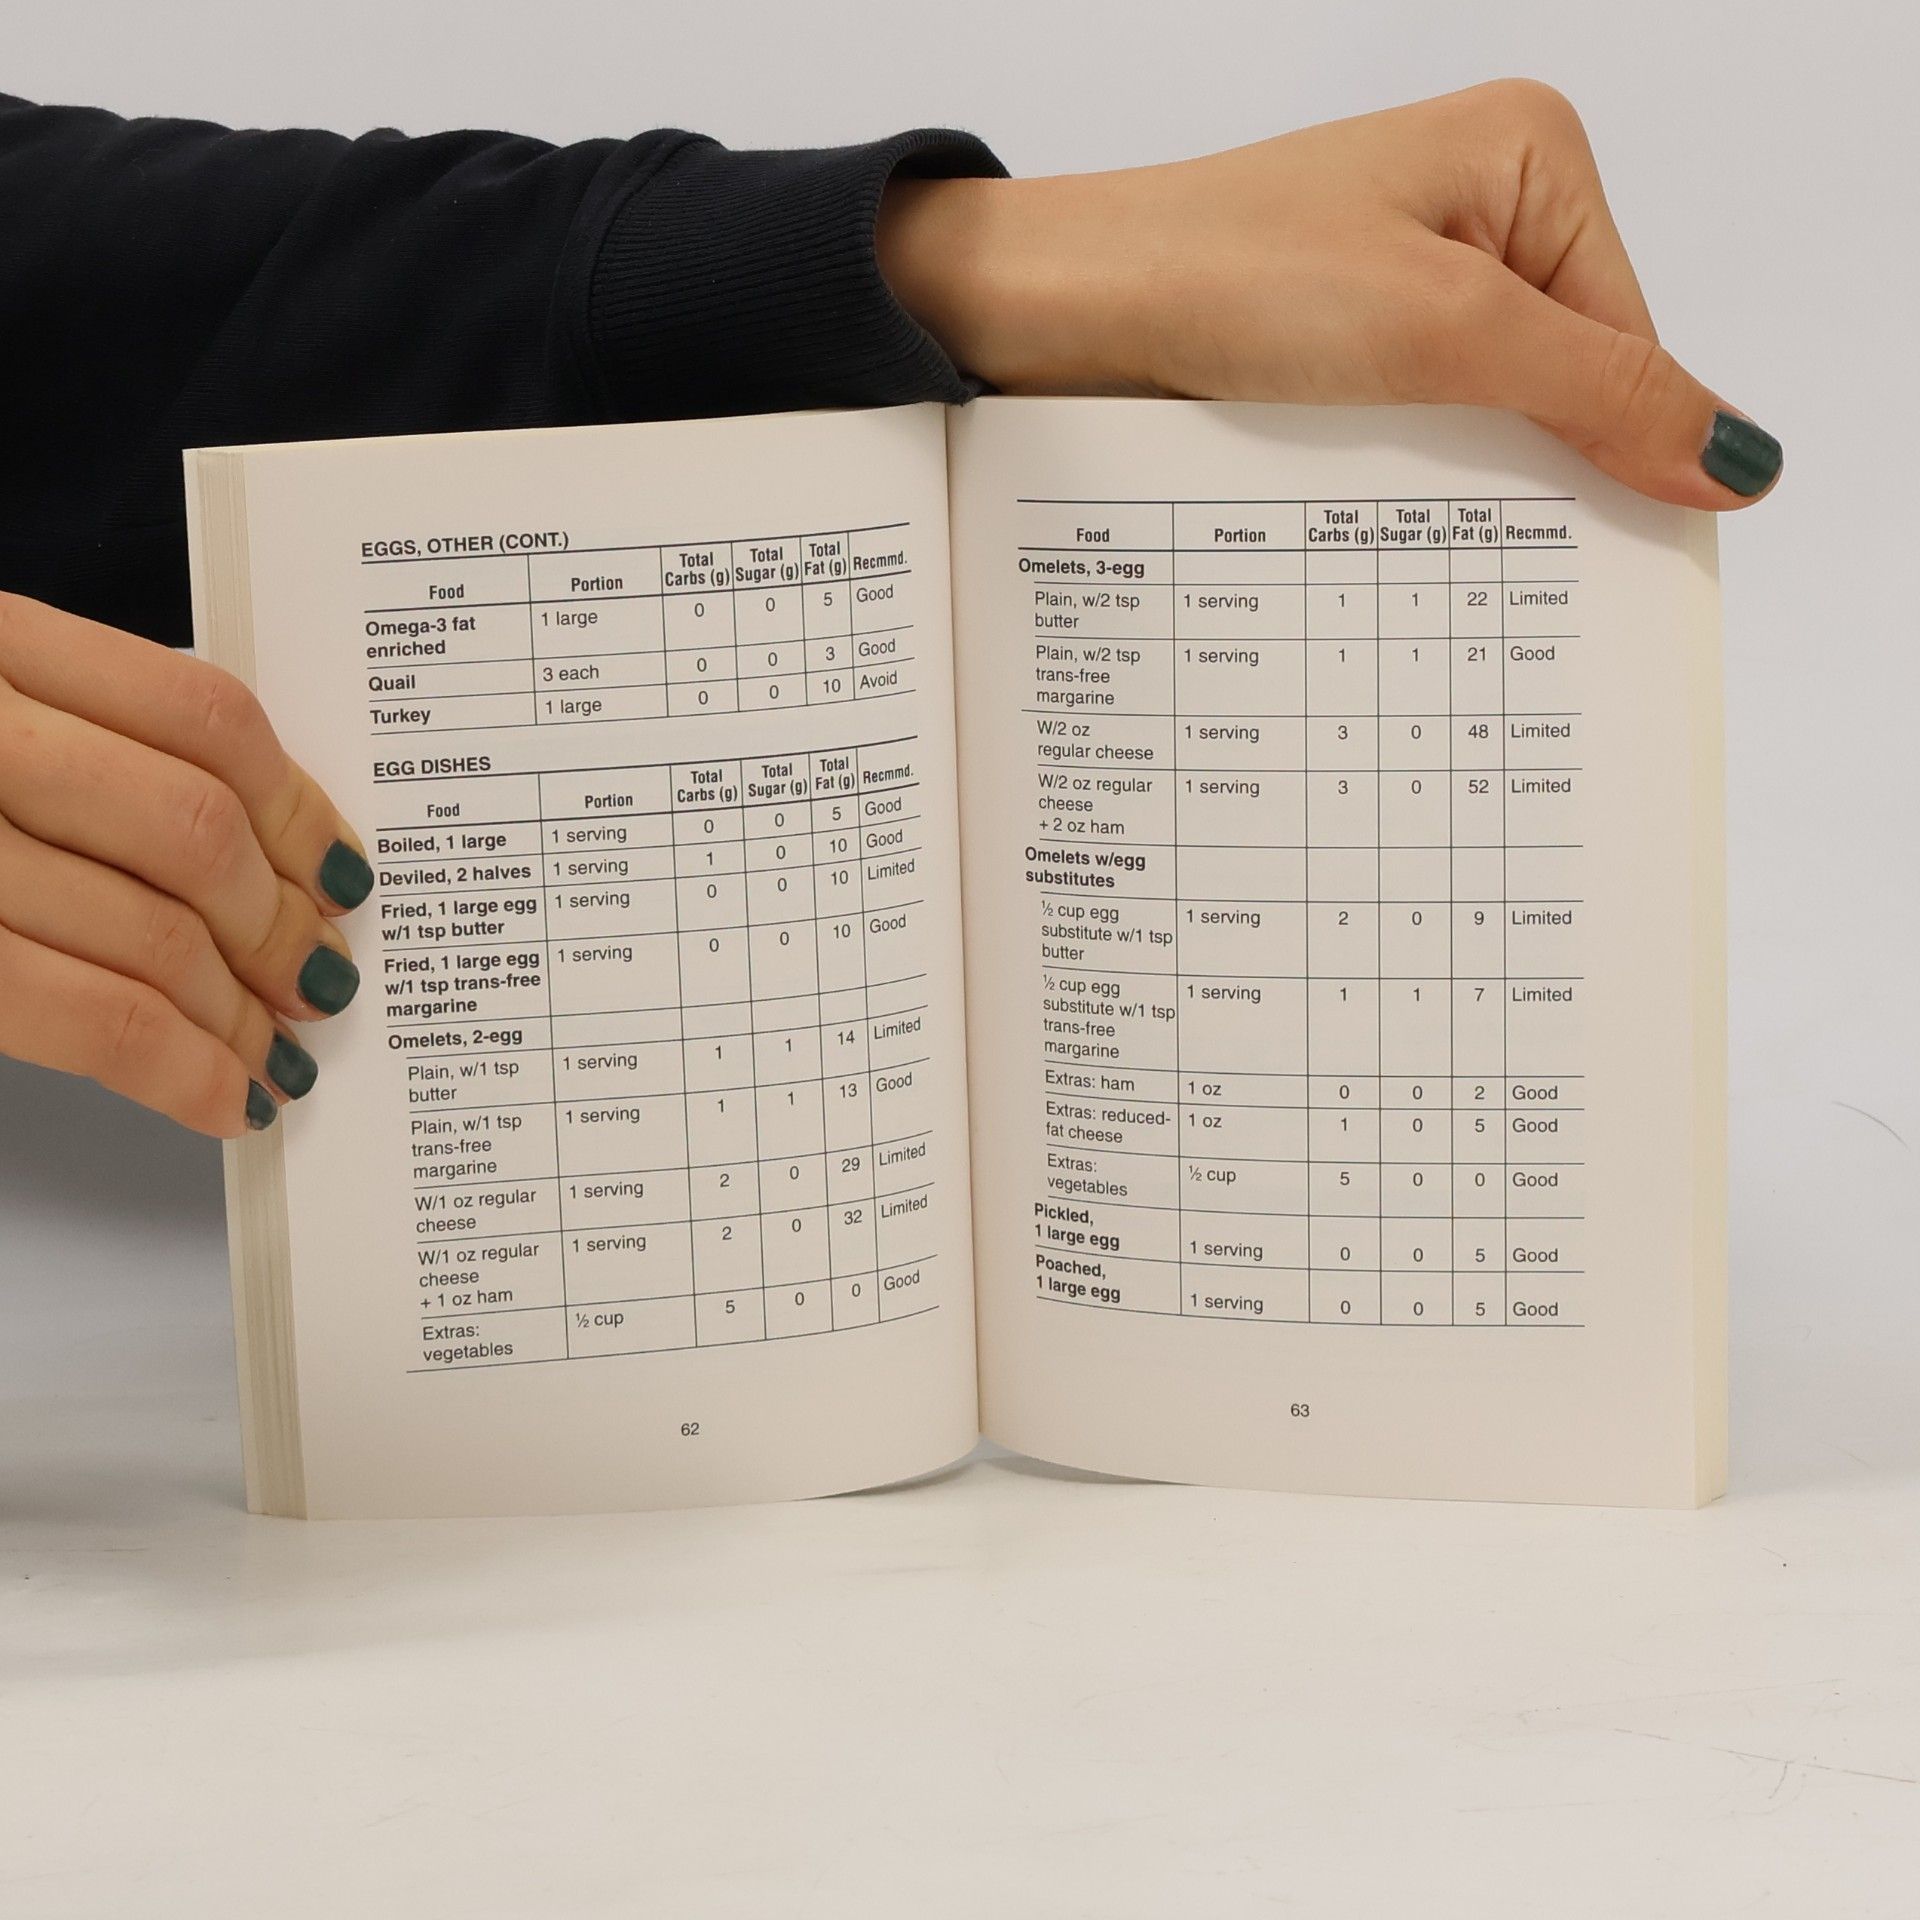 EGGS, OTHER (CONT.)
Food Portion Total Carbs (g) Total Sugar (g) Total Fat (g) Recmmd.
Omega-3 fat enriched 1 large 0 0 5 Good
Quail 3 each 0 0 3 Good
Turkey 1 large 0 0 10 Avoid
EGG DISHES
Food Portion Total Carbs (g) Total Sugar (g) Total Fat (g) Recmmd.
Boiled, 1 large 1 serving 0 0 5 Good
Deviled, 2 halves 1 serving 1 0 10 Good
Fried, 1 large egg w/1 tsp butter 1 serving 0 0 10 Limited
Fried, 1 large egg w/1 tsp trans-free margarine 1 serving 0 0 10 Good
Omelets, 2-egg
Plain, w/1 tsp butter 1 serving 1 1 14 Limited
Plain, w/1 tsp trans-free margarine 1 serving 1 1 13 Good
W/1 oz regular cheese 1 serving 2 0 29 Limited
W/1 oz regular cheese + 1 oz ham 1 serving 2 0 32 Limited
Extras: vegetables ½ cup 5 0 0 Good
62
Food Portion Total Carbs (g) Total Sugar (g) Total Fat (g) Recmmd.
Omelets, 3-egg
Plain, w/2 tsp butter 1 serving 1 1 22 Limited
Plain, w/2 tsp trans-free margarine 1 serving 1 1 21 Good
W/2 oz regular cheese 1 serving 3 0 48 Limited
W/2 oz regular cheese + 2 oz ham 1 serving 3 0 52 Limited
Omelets w/egg substitutes
½ cup egg substitute w/1 tsp butter 1 serving 2 0 9 Limited
½ cup egg substitute w/1 tsp trans-free margarine 1 serving 1 1 7 Limited
Extras: ham 1 oz 0 0 2 Good
Extras: reduced-fat cheese 1 oz 1 0 5 Good
Extras: vegetables ½ cup 5 0 0 Good
Pickled, 1 large egg 1 serving 0 0 5 Good
Poached, 1 large egg 1 serving 0 0 5 Good
63